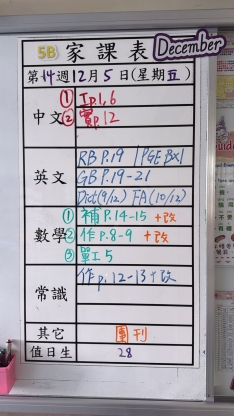 5B 家課表 December
第14週12月5日(星期五)
中文 ① 工p.1,6
② 實p.12
英文 RB P.19 / PGE Bx1
GB P.19-21
Dict(9/12) FA(10/12)
數學 ① 補 P.14-15 +改
② 作 P.8-9 +改
③ 單工5
常識 作 p.12-13+改
其它 圍刊
值日生 28